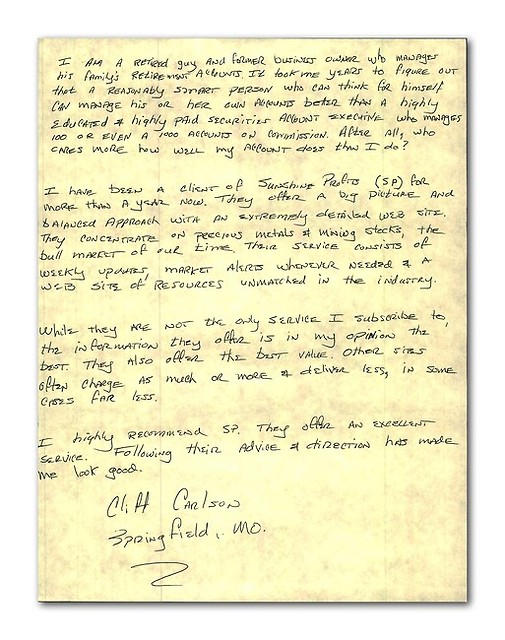 I am a retired guy and former business owner who manages
his family's retirement accounts. It took me years to figure out
that a reasonably smart person who can think for himself
can manage his or her own accounts better than a highly
educated & highly paid securities account executive who manages
100 or even a 1000 accounts on commission. After all, who
cares more how well my account does than I do?
I have been a client of Sunshine Profits (SP) for
more than a year now. They offer a big picture and
balanced approach with an extremely detailed web site.
They concentrate on precious metals & mining stocks, the
bull market of our time. Their service consists of
weekly updates, market alerts whenever needed & a
web site of resources unmatched in the industry.
While they are not the only service I subscribe to,
the information they offer is in my opinion the
best. They also offer the best value. Other sites
often charge as much or more & deliver less, in some
cases far less.
I highly recommend SP. They offer an excellent
service. Following their advice & direction has made
me look good.
Cliff Carlson
Springfield, MO.